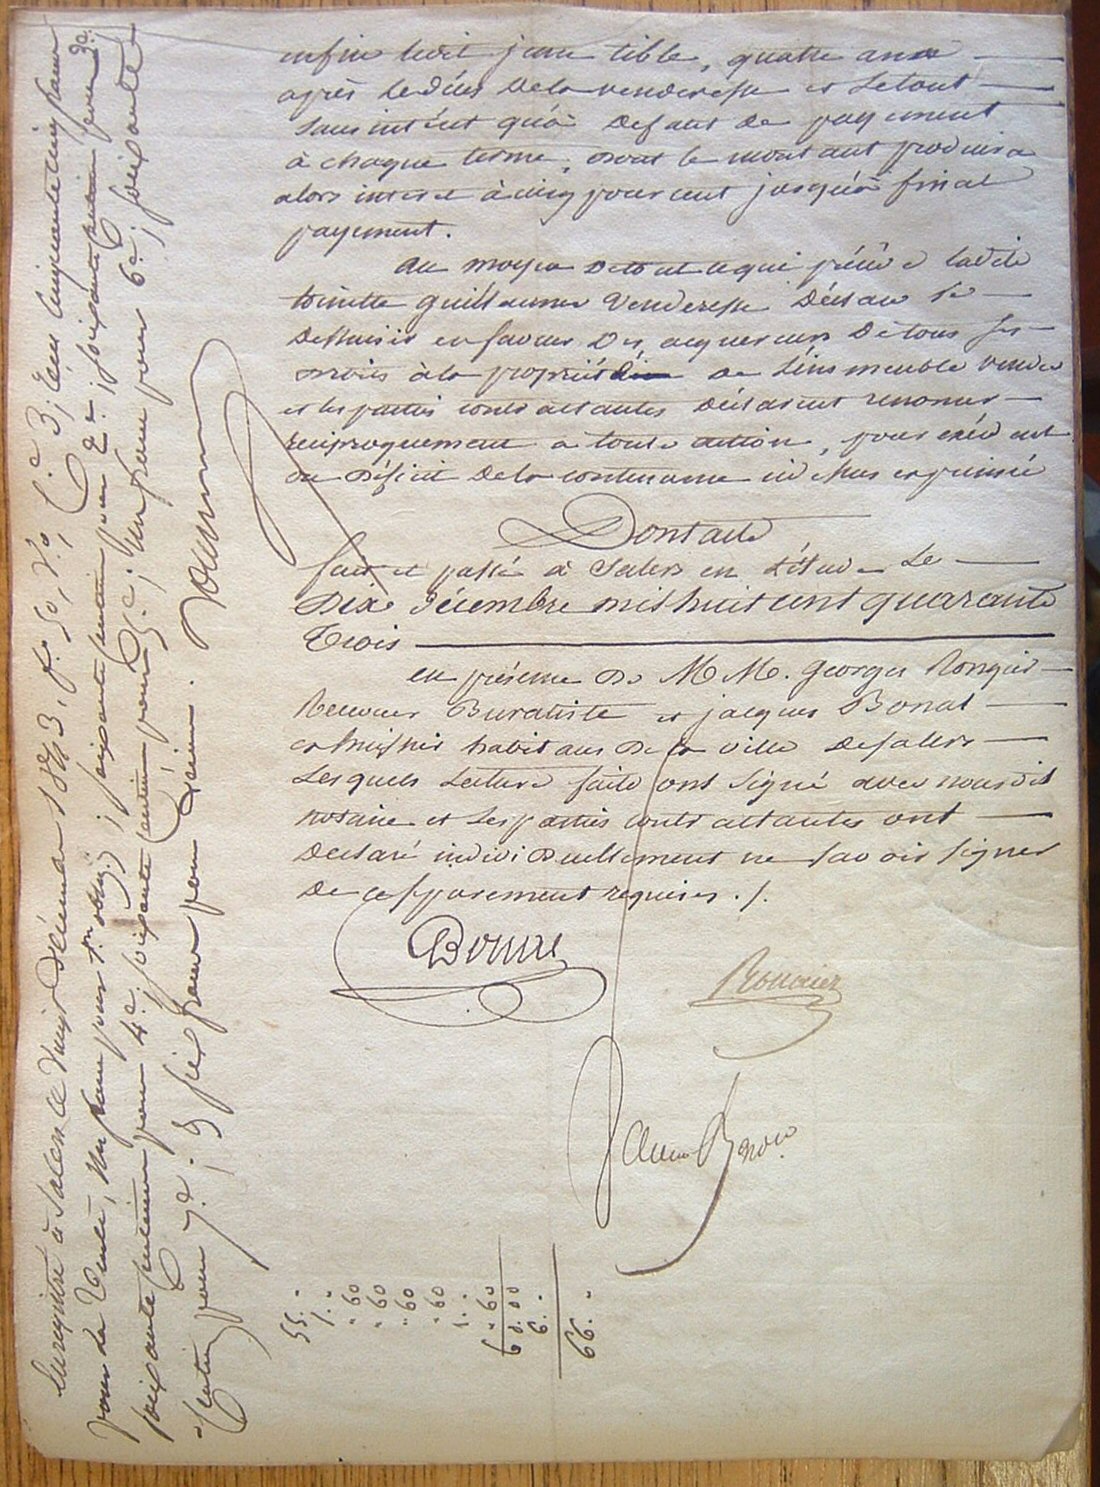 enfin ledit jean tible, quatre ans
après le décès de la venderesse et le tout
sans intérêt qu'à defaut de payement
à chaque terme, dont le montant produira
alors interet à cinq pour cent jusqu'à final
payement.
Au moyen de tout ce qui précède ladite
toinette guillaumes venderesse déclare se
dessaisir en faveur des acquereurs de tous ses
droits à la propriété de l'immeuble vendu
et les parties contractantes déclarent renoncer
reciproquement a toute action, pour excédent
ou déficit de la contenance ci dessus exprimée
Dont acte
fait et passé à Salers en l'étude le
Dix décembre mil huit cent quarante
Trois
en présence de MM. Georges
Buraliste et jacques Bonal
habitans de la ville de salers
Lesquels lecture faite ont signé avec nous dit
notaire et les parties contractantes ont
declaré individuellement ne savoir signer
de ce sparement requises ./.
Enregistré à Salers le vingt décembre 1843, f.° 50, v.°, c.e 3; reçu cinquante cinq francs
pour la vente, un franc pour 1re oblig.; soixante centimes pour 2e; soixante centimes pour 3e;
soixante centimes pour 4e; soixante centimes pour 5e; un franc pour 6e; soixante
centimes pour 7e; et six francs pour décime.
55. "
1. "
" 60
" 60
" 60
" 60
1. "
" 60
60.00
6. "
66. "